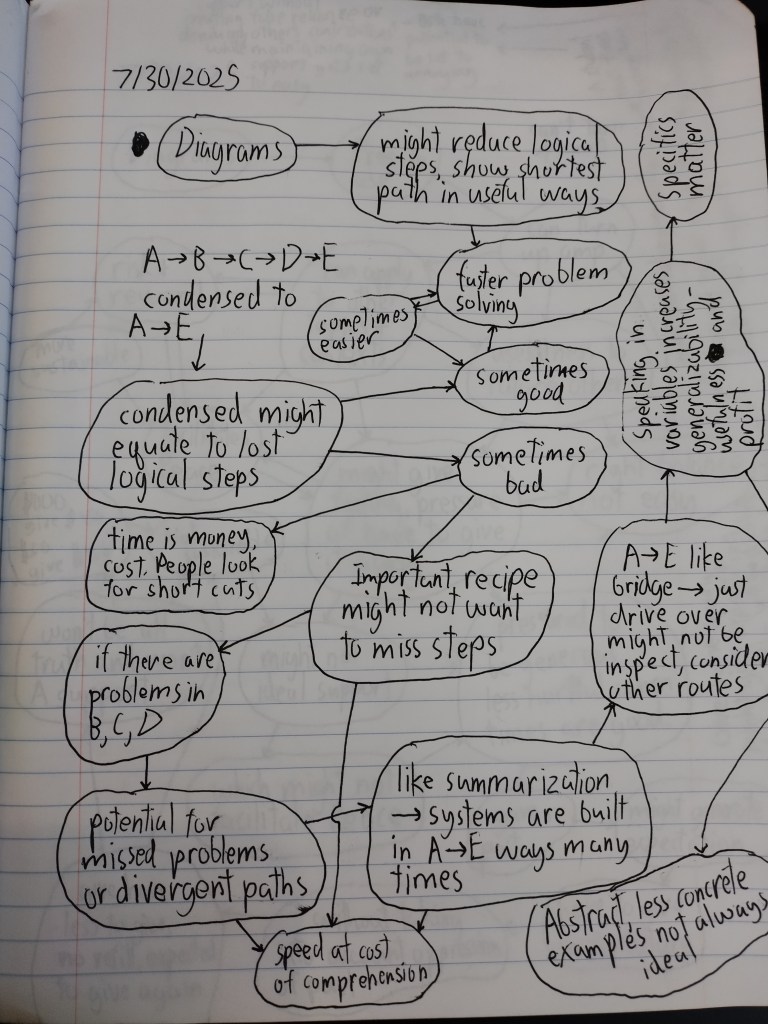 7/30/2025
Diagrams
might reduce logical
steps, show shortest
path in useful ways
Specifics
matter
A→B→C→D→E
condensed to
A→E
faster problem
solving
sometimes
easier
sometimes
good
Speaking in
variables increases
generalizability-
usefulness and
profit
condensed might
equate to lost
logical steps
sometimes
bad
time is money,
cost. People look
for short cuts
Important, recipe
might not want
to miss steps
A→E like
bridge → just
drive over
might not be
inspect, consider
other routes
if there are
problems in
B, C, D
like summarization
→ systems are built
in A→E ways many
times
potential for
missed problems
or divergent paths
speed at cost
of comprehension
Abstract, less concrete
examples not always
ideal